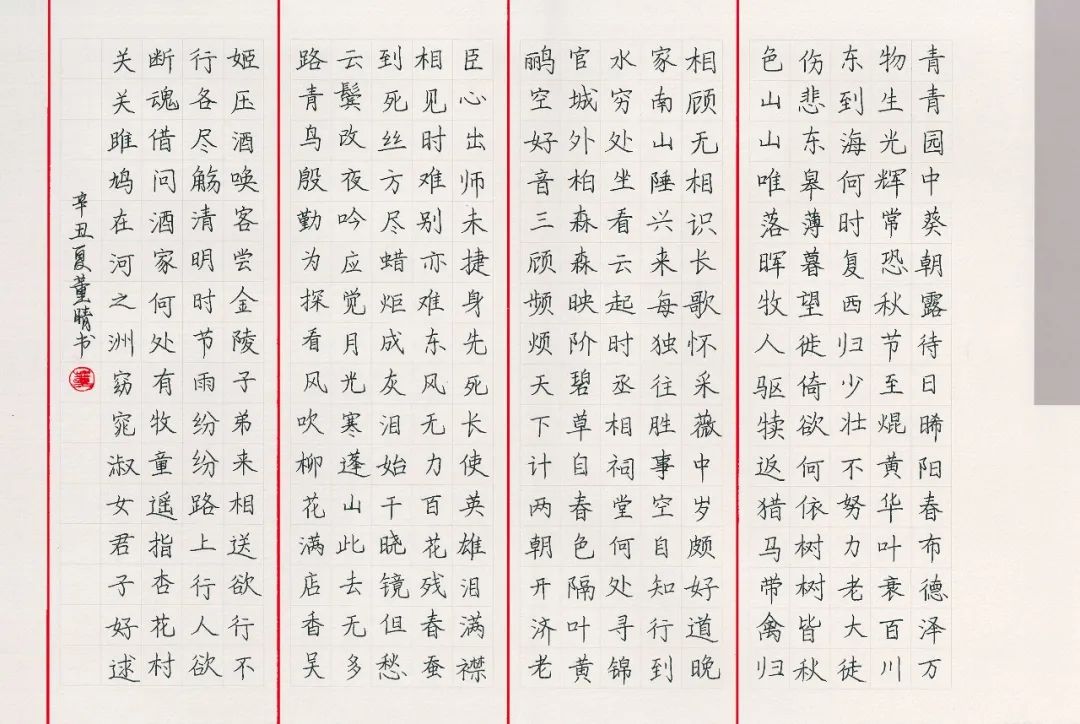 青青园中葵朝露待日晞阳春布德泽万
物生光辉常恐秋节至焜黄华叶衰百川
东到海何时复西归少壮不努力老大徒
伤悲东皋薄暮望徙倚欲何依树树皆秋
色山山唯落晖牧人驱犊返猎马带禽归
相顾无相识长歌怀采薇中岁颇好道晚
家南山陲兴来每独往胜事空自知行到
水穷处坐看云起时丞相祠堂何处寻锦
官城外柏森森映阶碧草自春色隔叶黄
鹂空好音三顾频烦天下计两朝开济老
臣心出师未捷身先死长使英雄泪满襟
相见时难别亦难东风无力百花残春蚕
到死丝方尽蜡炬成灰泪始干晓镜但愁
云鬓改夜吟应觉月光寒蓬山此去无多
路青鸟殷勤为探看风吹柳花满店香吴
姬压酒唤客尝金陵子弟来相送欲行不
行各尽觞清明时节雨纷纷路上行人欲
断魂借问酒家何处有牧童遥指杏花村
关关雎鸠在河之洲窈窕淑女君子好逑
辛丑夏董晴书